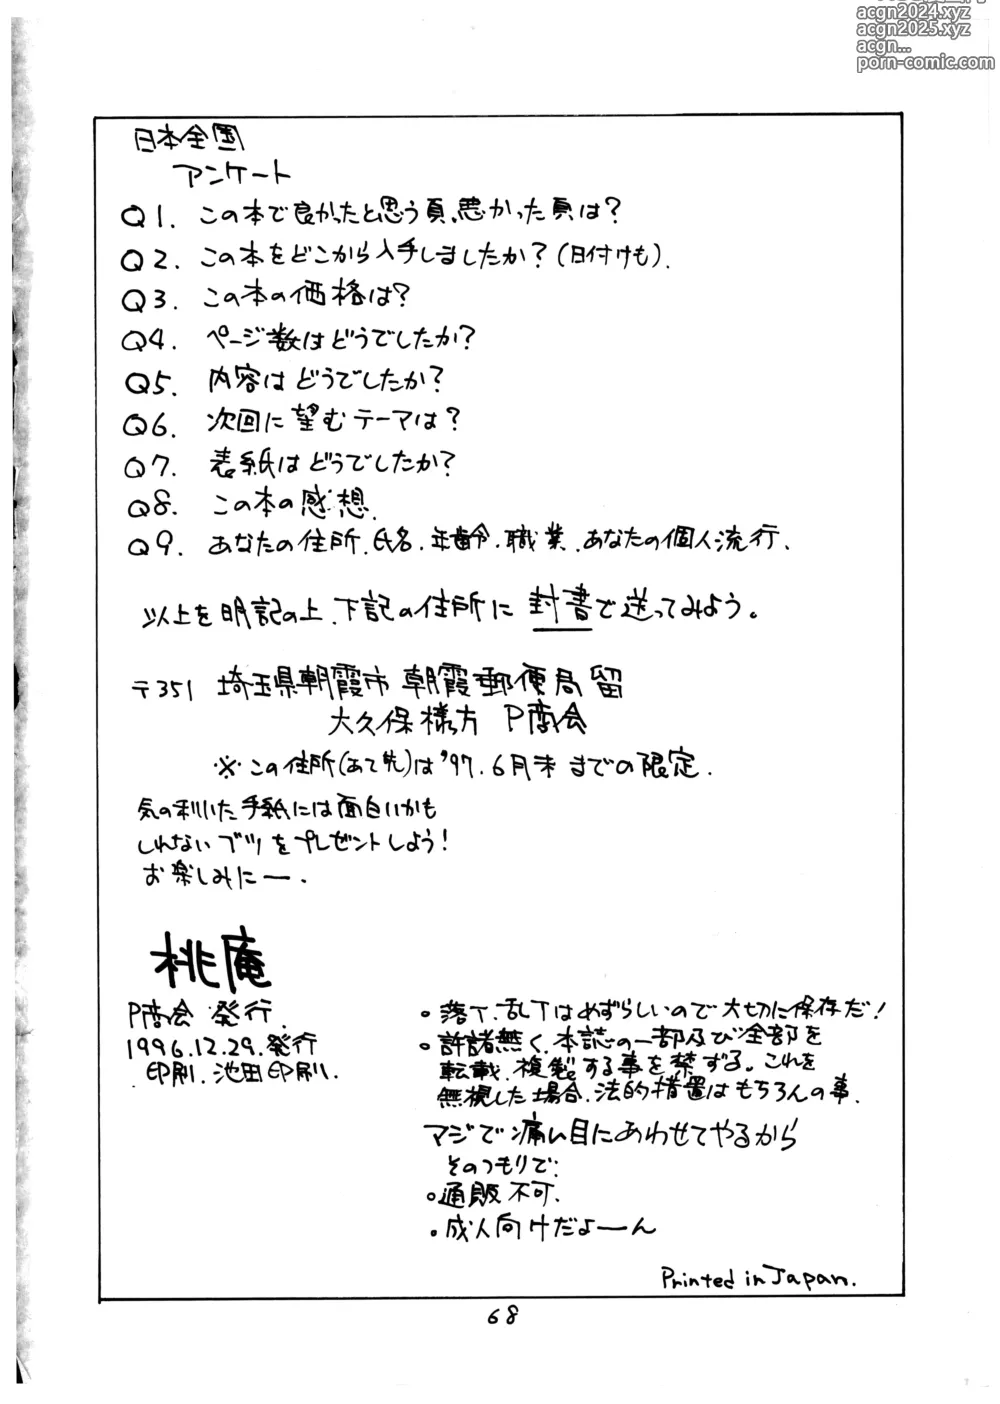 acgn2024.xyz
acgn2025.xyz
acgn...
porn-comic.com
日本全国
アンケート
Q1. この本で良かったと思う頁、悪かった頁は?
Q2. この本をどこから入手しましたか?(日付けも).
Q3. この本の価格は?
Q4. ページ数はどうでしたか?
Q5. 内容はどうでしたか?
Q6. 次回に望むテーマは?
Q7. 表紙はどうでしたか?
Q8. この本の感想.
Q9. あなたの住所.氏名.年齢.職業.あなたの個人流行.
以上を明記の上、下記の住所に封書で送ってみよう。
〒351 埼玉県朝霞市朝霞郵便局留
大久保様方 P商会
※この住所(あて先)は'97.6月末までの限定.
気の利いた手紙には面白いかも
しれないブツをプレゼントしよう!
お楽しみにー.
桃庵
P商会 発行.
1996.12.29.発行
印刷.池田印刷.
・落丁.乱丁はめずらしいので大切に保存だ!
・許諾無く、本誌の一部及び全部を
転載、複製する事を禁ずる。これを
無視した場合、法的措置はもちろんの事.
マジで痛い目にあわせてやるから
そのつもりで.
・通販不可.
・成人向けだよーん
Printed in Japan.
68